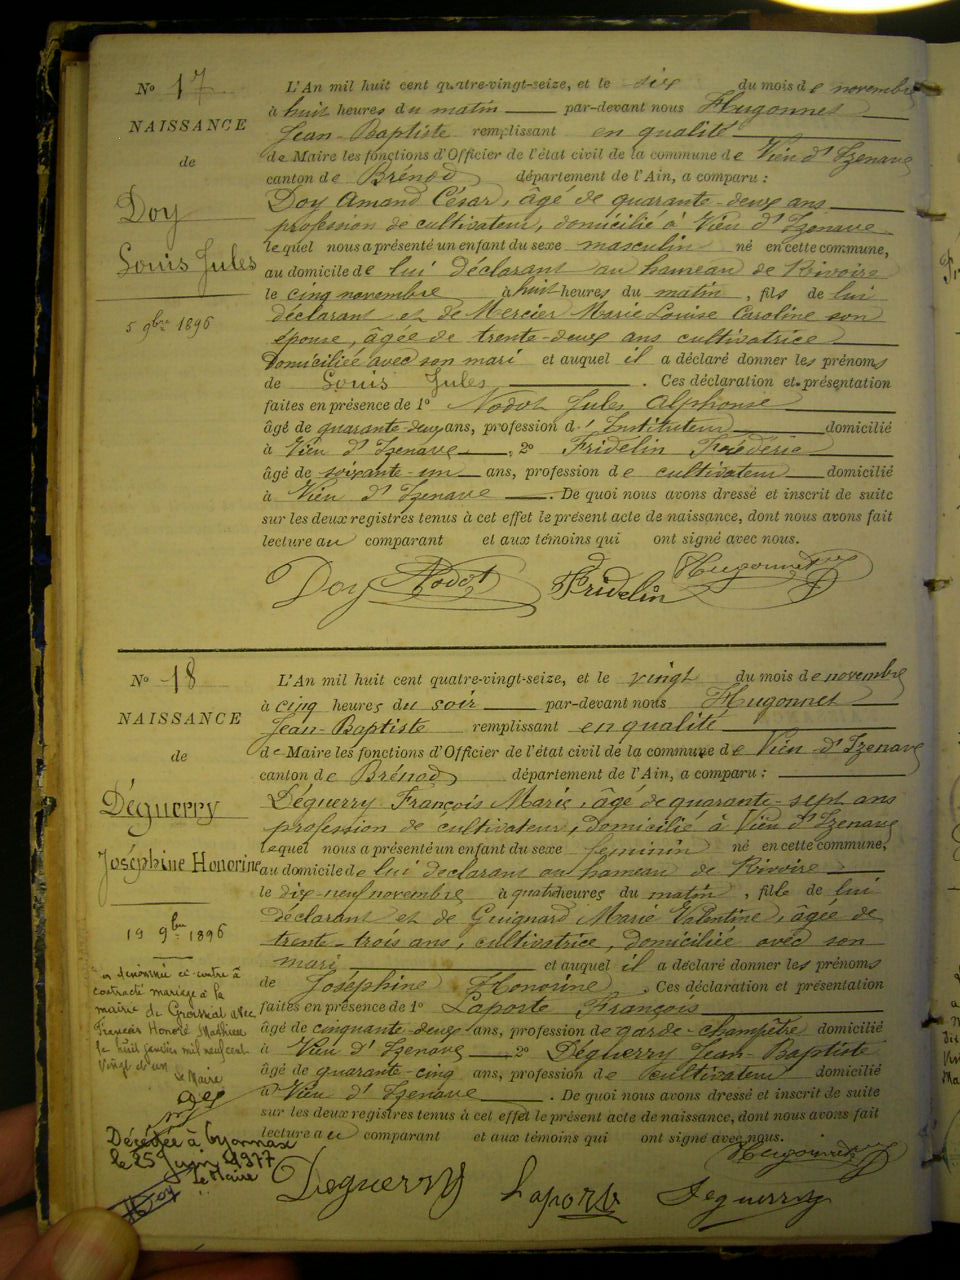 N° 17
NAISSANCE
de
Doy
Louis Jules
5 9bre 1896
L'An mil huit cent quatre-vingt-seize, et le six du mois de novembre
à huit heures du matin par-devant nous Hugonnet
Jean-Baptiste remplissant en qualité
de Maire les fonctions d'Officier de l'état civil de la commune de Vieu d'Izenave
canton de Brénod département de l'Ain, a comparu :
Doy Amand César, âgé de quarante-deux ans
profession de cultivateur, domicilié à Vieu d'Izenave
lequel nous a présenté un enfant du sexe masculin né en cette commune,
au domicile de lui déclarant au hameau de Rivoire
le cinq novembre à huit heures du matin, fils de lui
déclarant et de Mercier Marie Louise Caroline son
épouse, âgée de trente-deux ans cultivatrice
domiciliée avec son mari et auquel il a déclaré donner les prénoms
de Louis Jules. Ces déclaration et présentation
faites en présence de 1° Nodot Jules Alphonse
âgé de quarante-deux ans, profession d'Instituteur domicilié
à Vieu d'Izenave, 2° Fridelin Frédéric
âgé de soixante-un ans, profession de cultivateur domicilié
à Vieu d'Izenave. De quoi nous avons dressé et inscrit de suite
sur les deux registres tenus à cet effet le présent acte de naissance, dont nous avons fait
lecture au comparant et aux témoins qui ont signé avec nous.
Doy Nodot Fridelin Hugonnet
N° 18
NAISSANCE
de
Déguerry
Joséphine Honorine
19 9bre 1896
ci-contre à
contracté mariage à la
mairie de Groissiat avec
François Honoré Mathieu
le huit janvier mil neuf cent
vingt d'un
Le Maire
Décédée à Oyonnax
le 25 Juin 1977
Le Maire
L'An mil huit cent quatre-vingt-seize, et le vingt du mois de novembre
à cinq heures du soir par-devant nous Hugonnet
Jean-Baptiste remplissant en qualité
de Maire les fonctions d'Officier de l'état civil de la commune de Vieu-d'Izenave
canton de Brénod département de l'Ain, a comparu :
Déguerry François Marie, âgé de quarante-sept ans
profession de cultivateur, domicilié à Vieu d'Izenave
lequel nous a présenté un enfant du sexe féminin né en cette commune,
au domicile de lui déclarant au hameau de Rivoire
le dix-neuf novembre à quatre heures du matin, fille de lui
déclarant et de Guignard Marie Valentine, âgée de
trente-trois ans, cultivatrice, domiciliée avec son
mari et auquel il a déclaré donner les prénoms
de Joséphine Honorine. Ces déclaration et présentation
faites en présence de 1° Laporte François
âgé de cinquante-deux ans, profession de garde-champêtre domicilié
à Vieu d'Izenave 2° Déguerry Jean-Baptiste
âgé de quarante-cinq ans, profession de cultivateur domicilié
à Vieu d'Izenave. De quoi nous avons dressé et inscrit de suite
sur les deux registres tenus à cet effet le présent acte de naissance, dont nous avons fait
lecture au comparant et aux témoins qui ont signé avec nous.
Deguerry Laporte Deguerry Hugonnet